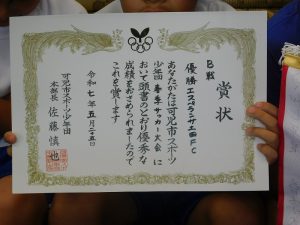 賞状
B戦
優勝 エスペランサ土田FC
あなたがたは可児市スポーツ
少年団 春季サッカー大会 に
おいて頭書のとおり優秀な
成績をおさめられましたので
これを賞します
令和七年五月二十五日
可児市スポーツ少年団
本部長 佐藤 慎也